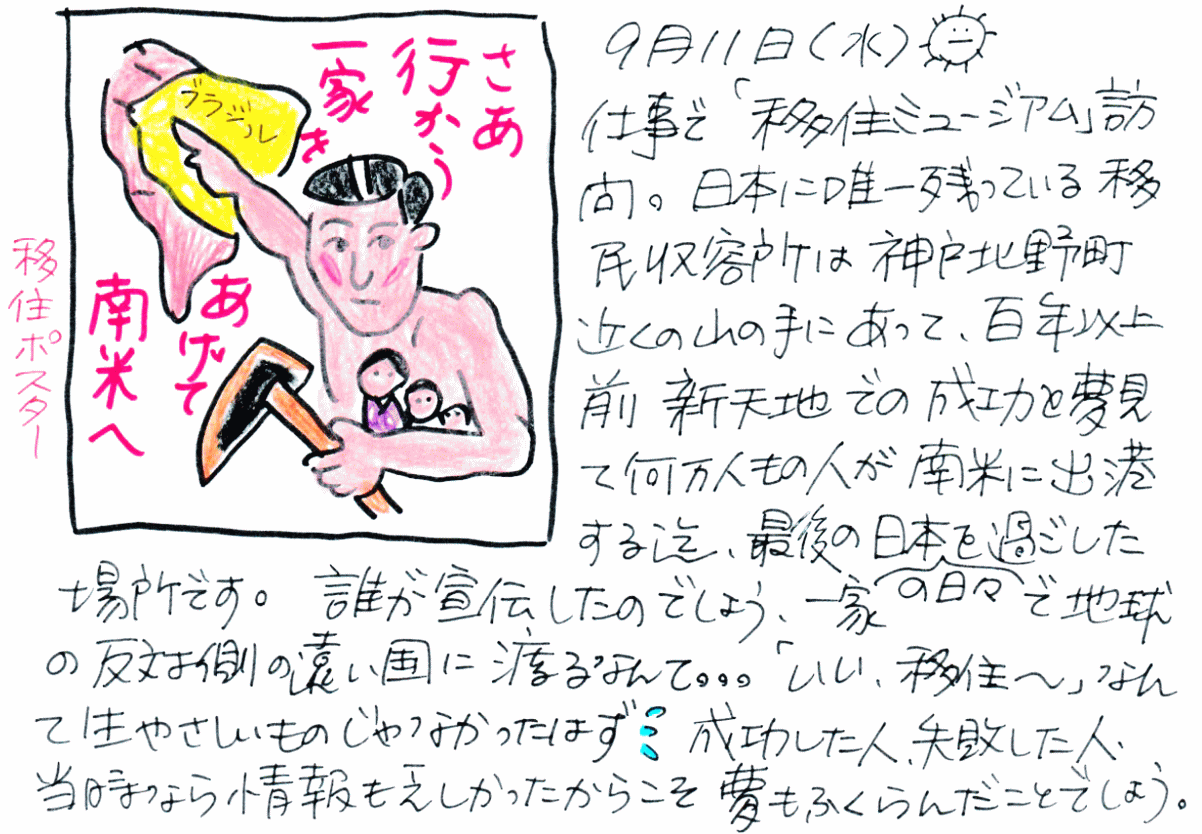 さあ
行かう
一家を
あげて
南米へ
ブラジル
移住ポスター
9月11日(水)
仕事で「移住ミュージアム」訪
問。日本に唯一残っている移
民収容所は神戸地野町
近くの山の手にあって、百年以上
前 新天地での成功を夢見
て何万人もの人が南米に出港
する迄、最後の日本を過ごした
の日々
場所です。誰が宣伝したのでしょう、一家で地球
の反対側の遠い国に渡るなんて。。。「いい、移住へ」なん
て生やさしいものじゃなかったはず 成功した人、失敗した人、
当時なら情報も乏しかったからこそ夢もふくらんだことでしょう。